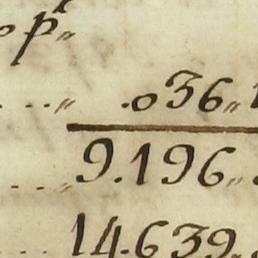 op„
...„ .036„
...„ 9.196„
... 14.639„